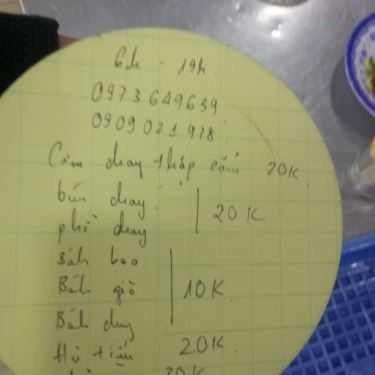 6h - 19h
0973649639
0909021978
Cơm chay thập cẩm 20K
bún chay
phở chay
20K
Bánh bao
Bánh giò
Bánh
10K
Hủ tiếu 20K
20K